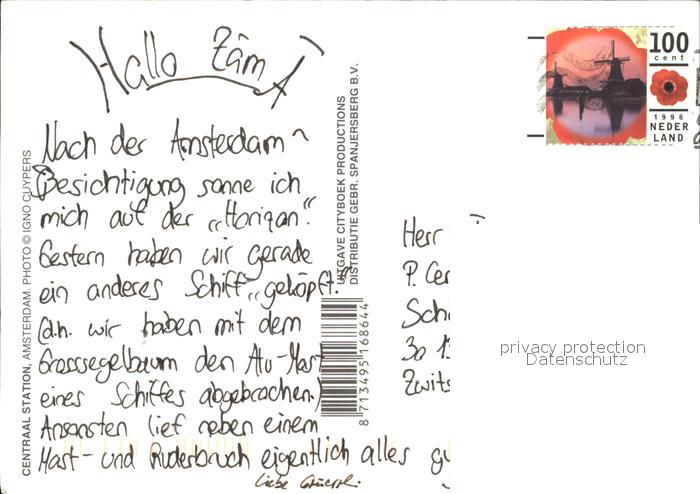 Hallo Zäme
Nach der Amsterdam-
Besichtigung sonne ich
mich auf der „Horizon“.
Gestern haben wir gerade
ein anderes Schiff „geköpft“
(d.h. wir haben mit dem
Grosssegelbaum den Alu-Mast
eines Schiffes abgebrochen.)
Ansonsten lief neben einem
Mast- und Ruderbruch eigentlich alles gu
Liebe Grüessli
Herr
P. Cer
Sch
30
Zwits
100
cent
1996
NEDER
LAND
CENTRAAL STATION, AMSTERDAM. PHOTO © IGNO CUYPERS
UITGAVE CITYBOEK PRODUCTIONS
DISTRIBUTIE GEBR. SPANJERSBERG B.V.
8 713495 168644
privacy protection
Datenschutz